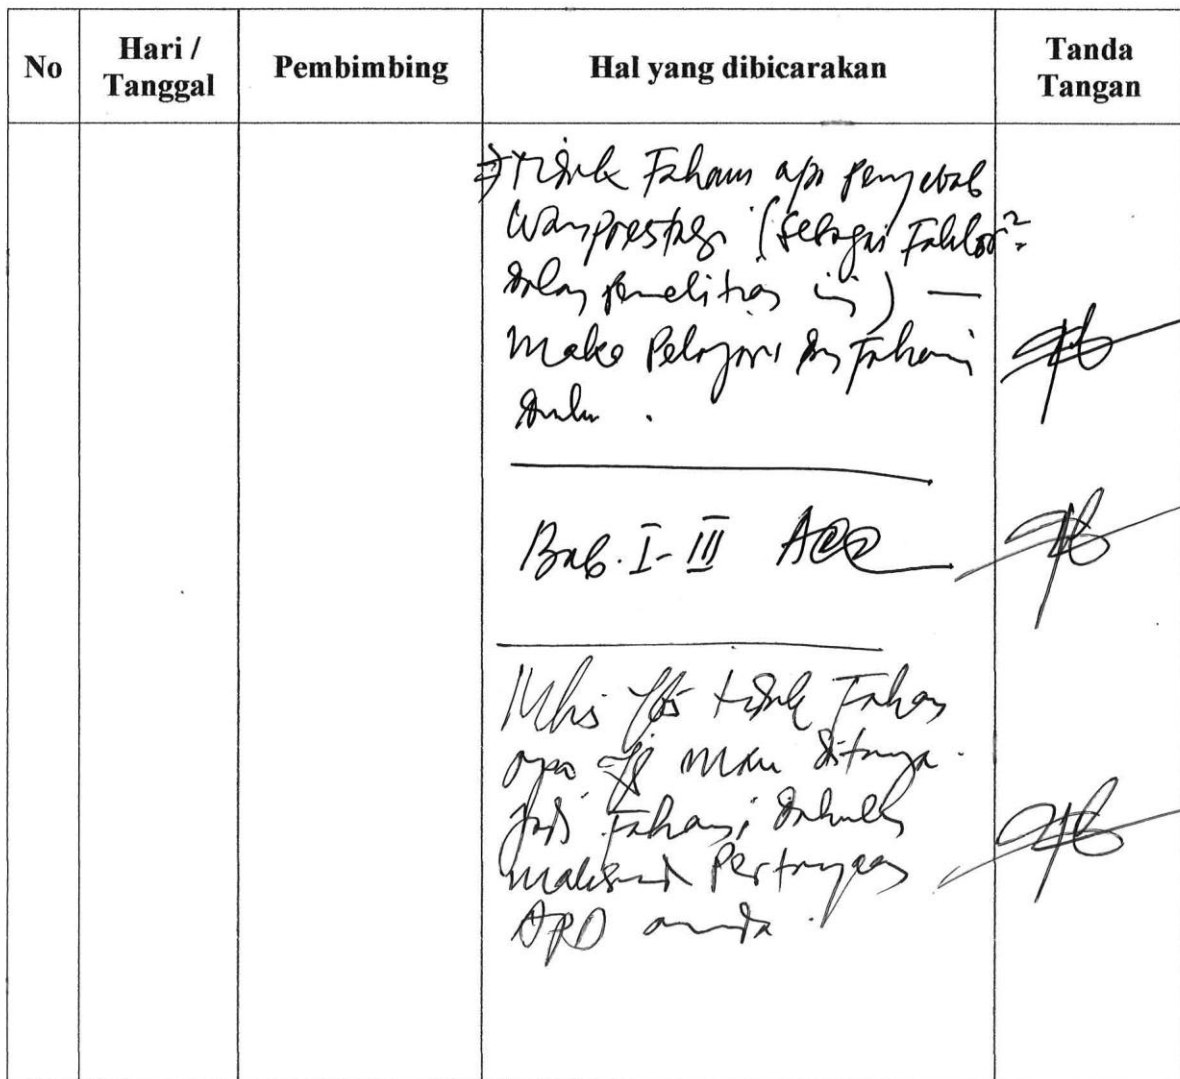 No
Hari /
Tanggal
Pembimbing
Hal yang dibicarakan
Tanda
Tangan
tidak Faham apa penyebab
Wanprestasi (sebagai Faktor²
dalam penelitian ini) —
maka Pelajari dan Fahami
dulu .
Bab. I - III ACC
Mhs yg tidak Faham
apa yg mau ditanya .
Jadi Fahami dahulu
maksud Pertanyaan
APD anda .